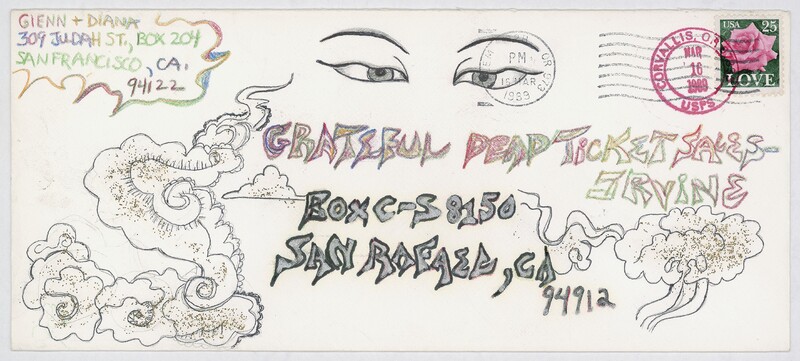 GlENN + DIANA
309 JUDAH ST., BOX 204
SAN FRANCISCO, CA.
94122
OR 973
PM
15 MAR
1989
CORVALLIS, OR
MAR
16
1989
USPS
USA 25
LOVE
GRATEFUL DEAD TICKET SALES-
IRVINE
BOX C-S 8150
SAN RAFAEL, CA
94912